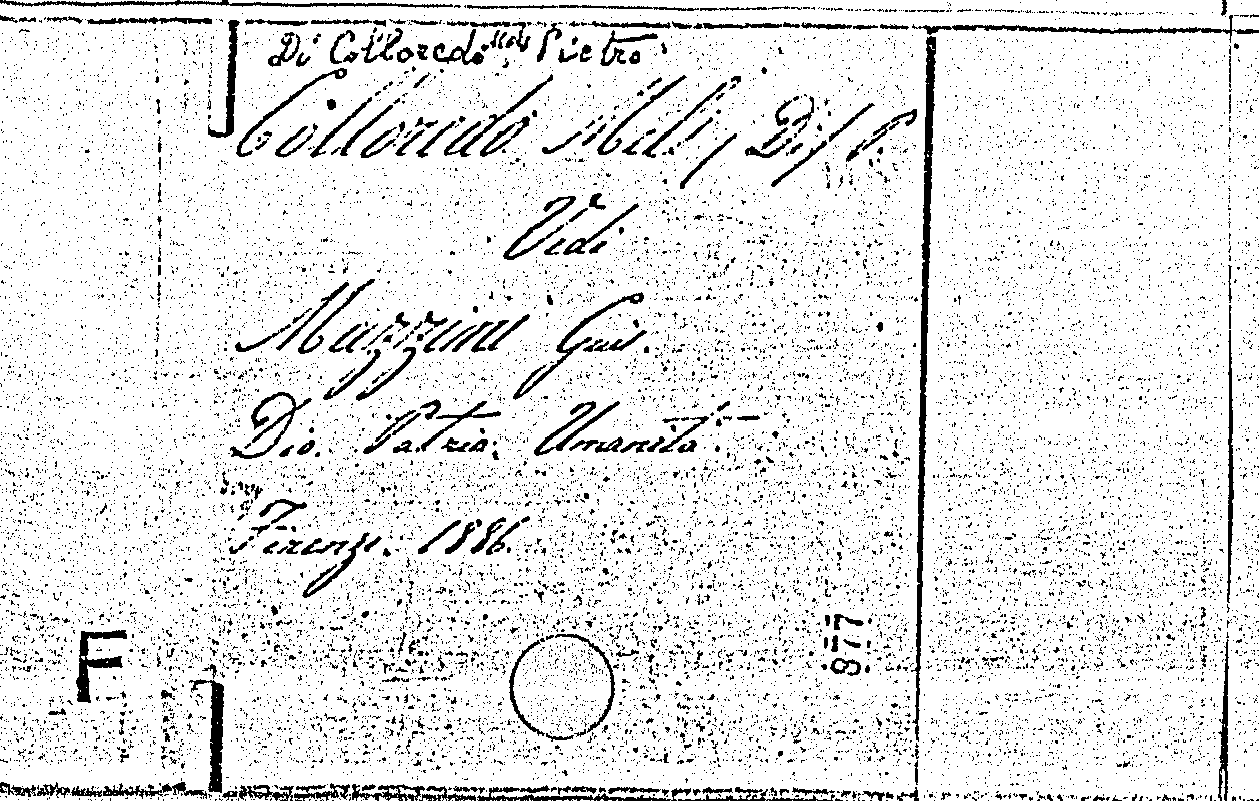 Di Colloredo Mels, Pietro
Colloredo Mels, Di, P.
Vedi
Mazzini Gius.
Dio. Patria. Umanità.
Firenze. 1886.
877
F